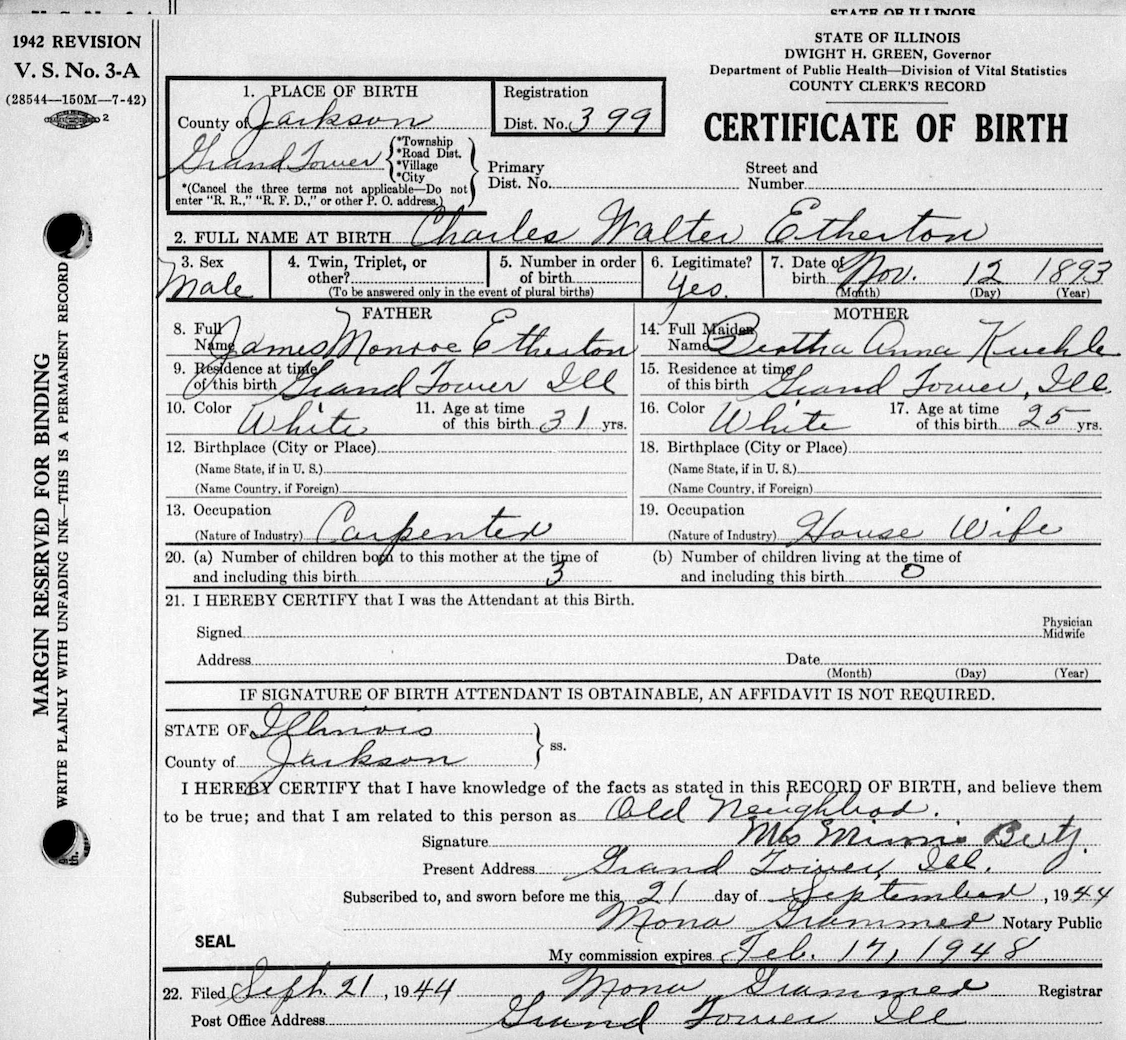 STATE OF ILLINOIS
1942 REVISION
V. S. No. 3-A
(28544—150M—7-42)
2
MARGIN RESERVED FOR BINDING
WRITE PLAINLY WITH UNFADING INK—THIS IS A PERMANENT RECORD
STATE OF ILLINOIS
DWIGHT H. GREEN, Governor
Department of Public Health—Division of Vital Statistics
COUNTY CLERK'S RECORD
CERTIFICATE OF BIRTH
1. PLACE OF BIRTH
County of Jackson
Registration
Dist. No. 399
Grand Tower
*Township
*Road Dist.
*Village
*City
*(Cancel the three terms not applicable—Do not
enter "R. R.," "R. F. D.," or other P. O. address.)
Primary
Dist. No.
Street and
Number
2. FULL NAME AT BIRTH Charles Walter Etherton
3. Sex
Male
4. Twin, Triplet, or
other?
5. Number in order
of birth
(To be answered only in the event of plural births)
6. Legitimate?
Yes.
7. Date of
birth Nov. 12 1893
(Month) (Day) (Year)
FATHER
8. Full
Name James Monroe Etherton
9. Residence at time
of this birth Grand Tower Ill
10. Color White
11. Age at time
of this birth 31 yrs.
12. Birthplace (City or Place)
(Name State, if in U. S.)
(Name Country, if Foreign)
13. Occupation
(Nature of Industry) Carpenter
MOTHER
14. Full Maiden
Name Bertha Anna Kuehle
15. Residence at time
of this birth Grand Tower, Ill.
16. Color White
17. Age at time
of this birth 25 yrs.
18. Birthplace (City or Place)
(Name State, if in U. S.)
(Name Country, if Foreign)
19. Occupation
(Nature of Industry) House Wife
20. (a) Number of children born to this mother at the time of
and including this birth 3
(b) Number of children living at the time of
and including this birth 0
21. I HEREBY CERTIFY that I was the Attendant at this Birth.
Signed
Physician
Midwife
Address Date
(Month) (Day) (Year)
IF SIGNATURE OF BIRTH ATTENDANT IS OBTAINABLE, AN AFFIDAVIT IS NOT REQUIRED.
STATE OF Illinois
County of Jackson
ss.
I HEREBY CERTIFY that I have knowledge of the facts as stated in this RECORD OF BIRTH, and believe them
to be true; and that I am related to this person as Old Neighbor.
Signature Mrs
Present Address Grand Tower, Ill.
Subscribed to, and sworn before me this 21 day of September, 1944
Mona Grammer Notary Public
SEAL
My commission expires Feb. 17, 1948
22. Filed Sept. 21, 1944 Mona Grammer Registrar
Post Office Address Grand Tower Ill